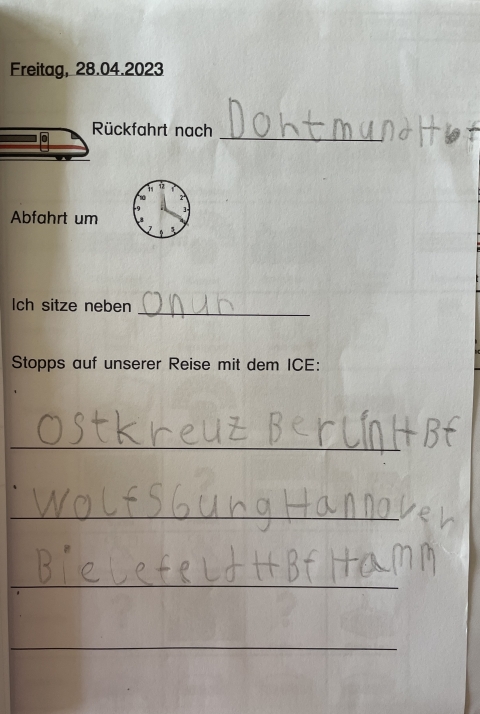 Freitag, 28.04.2023
Rückfahrt nach DohtmundHbf
Abfahrt um
12 1 2 3 4 5 6 7 8 9 10 11
Ich sitze neben onur
Stopps auf unserer Reise mit dem ICE:
Ostkreuz BerlinHBf
WolfSburgHannover
BieLefeLdHBfHamm